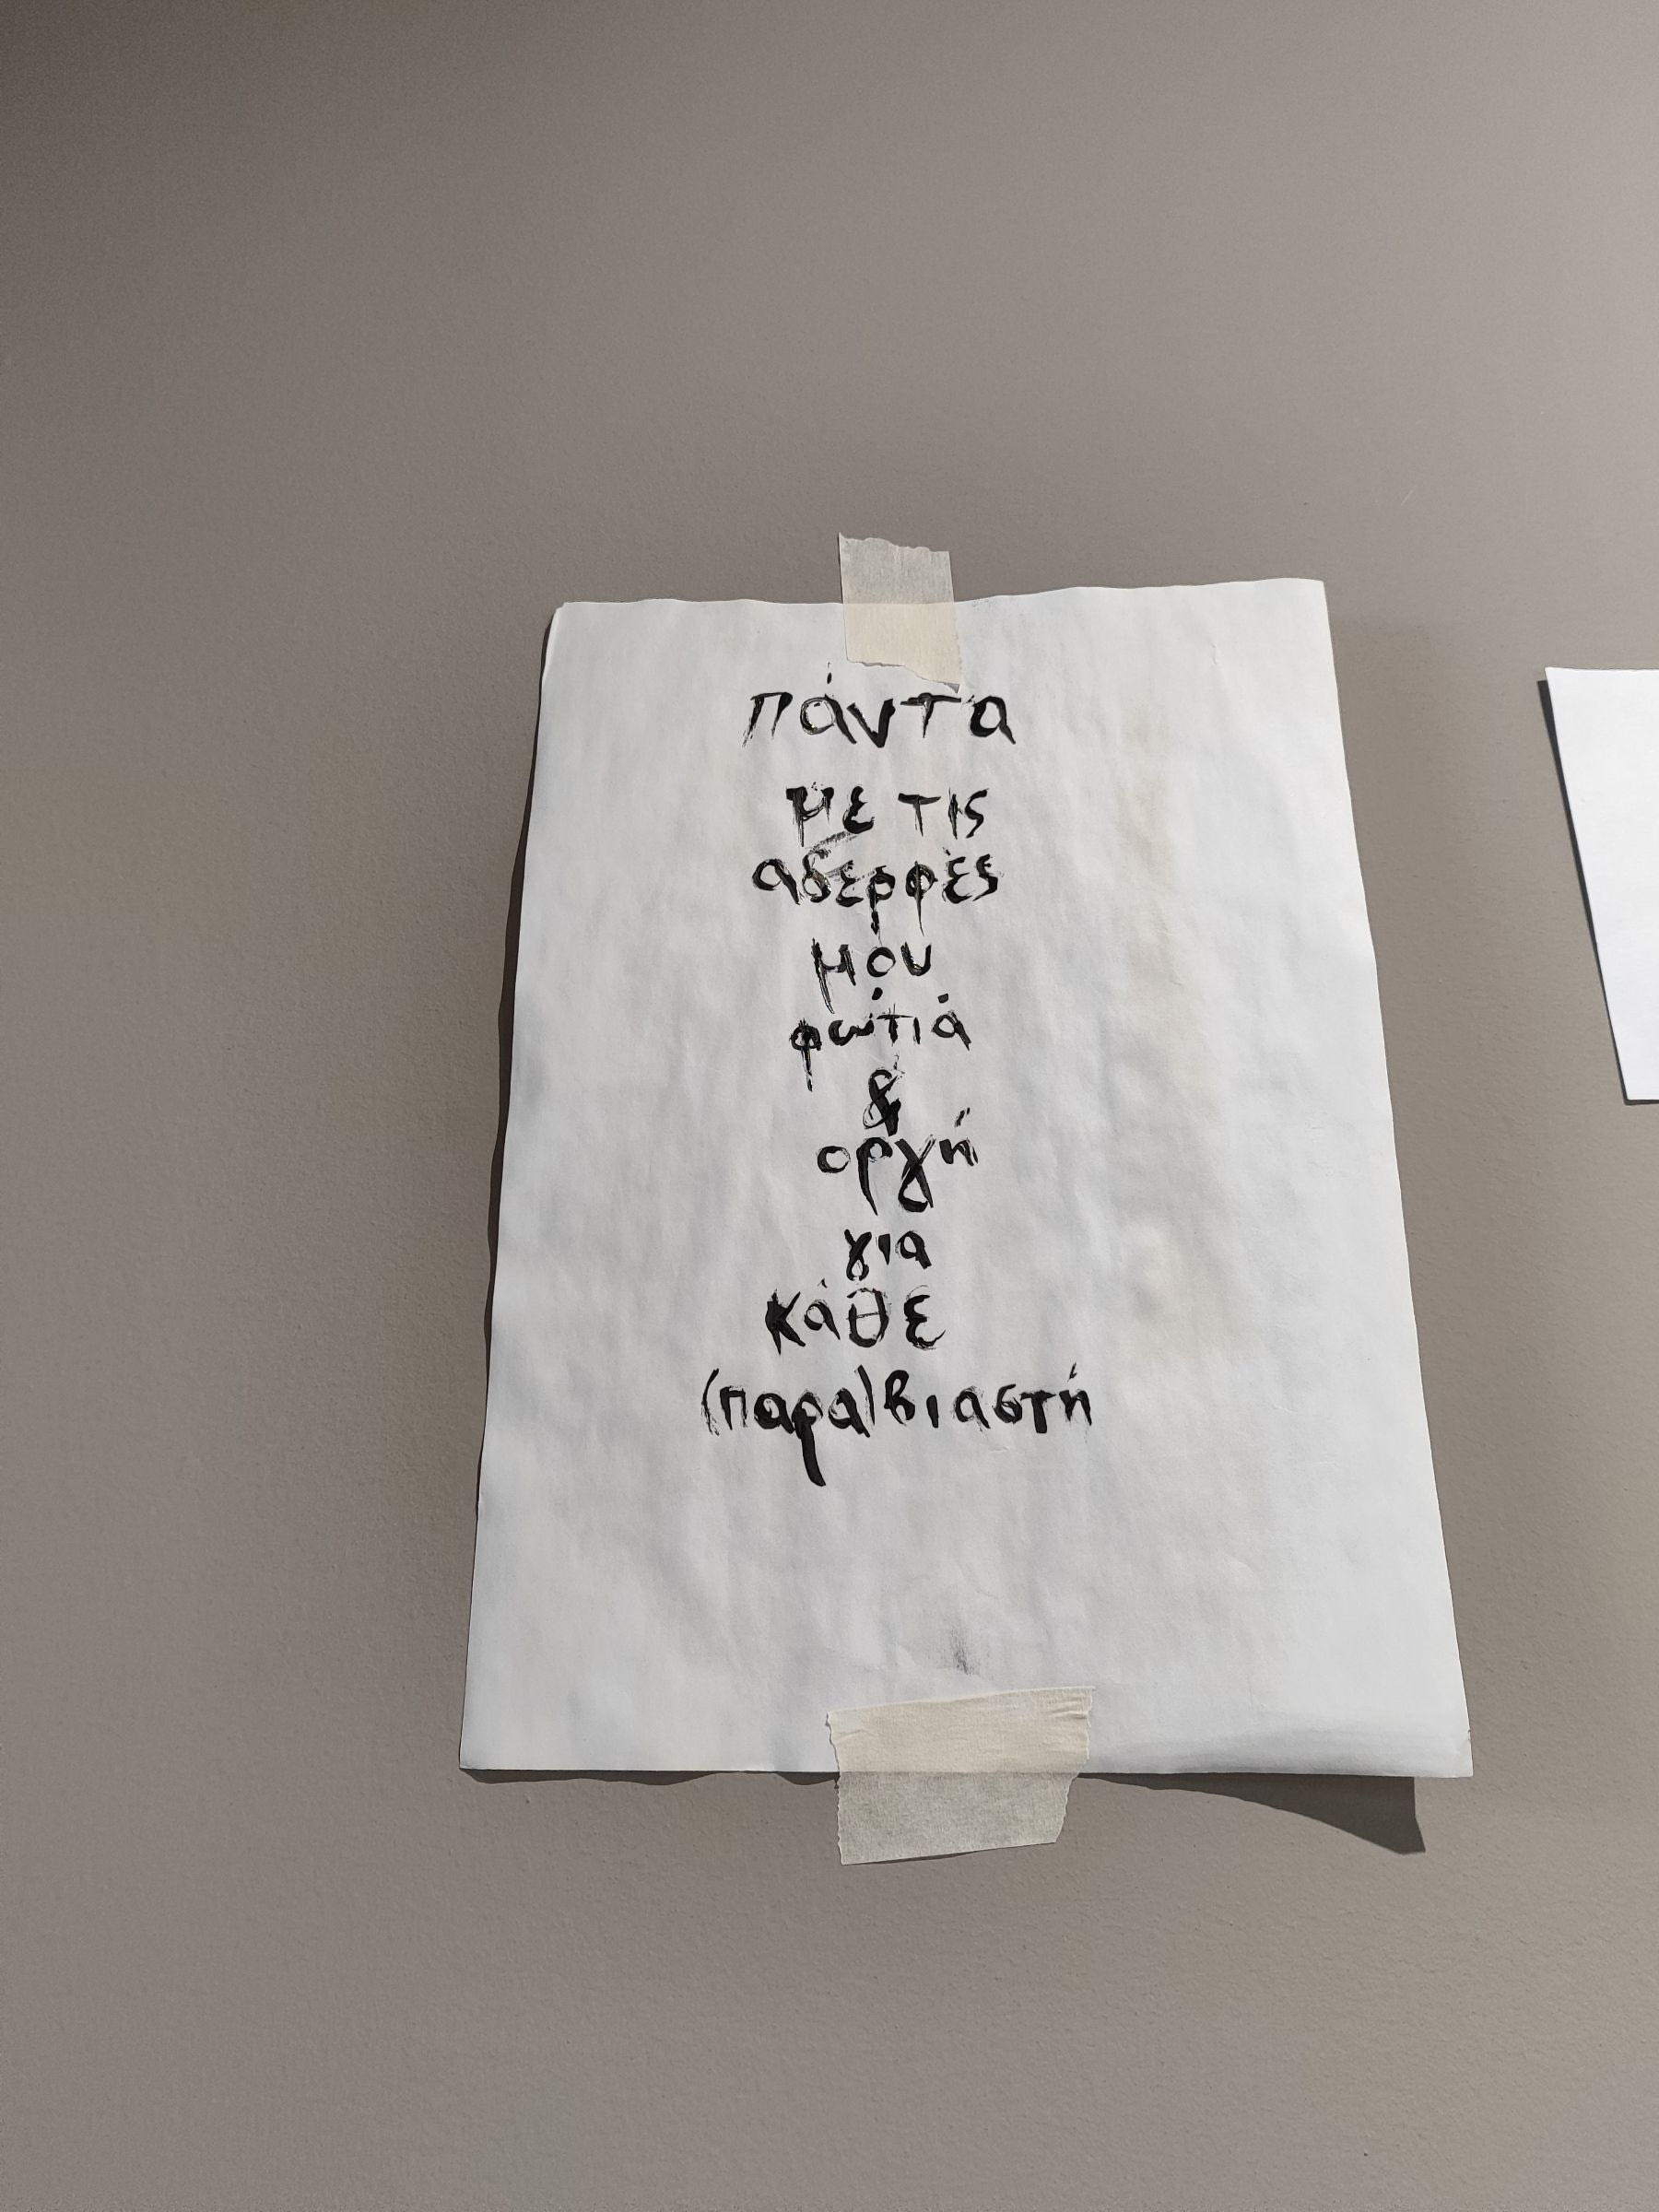 πάντα
με τις
αδερφές
μου
φωτιά
&
οργή
για
κάθε
(παρα)βιαστή